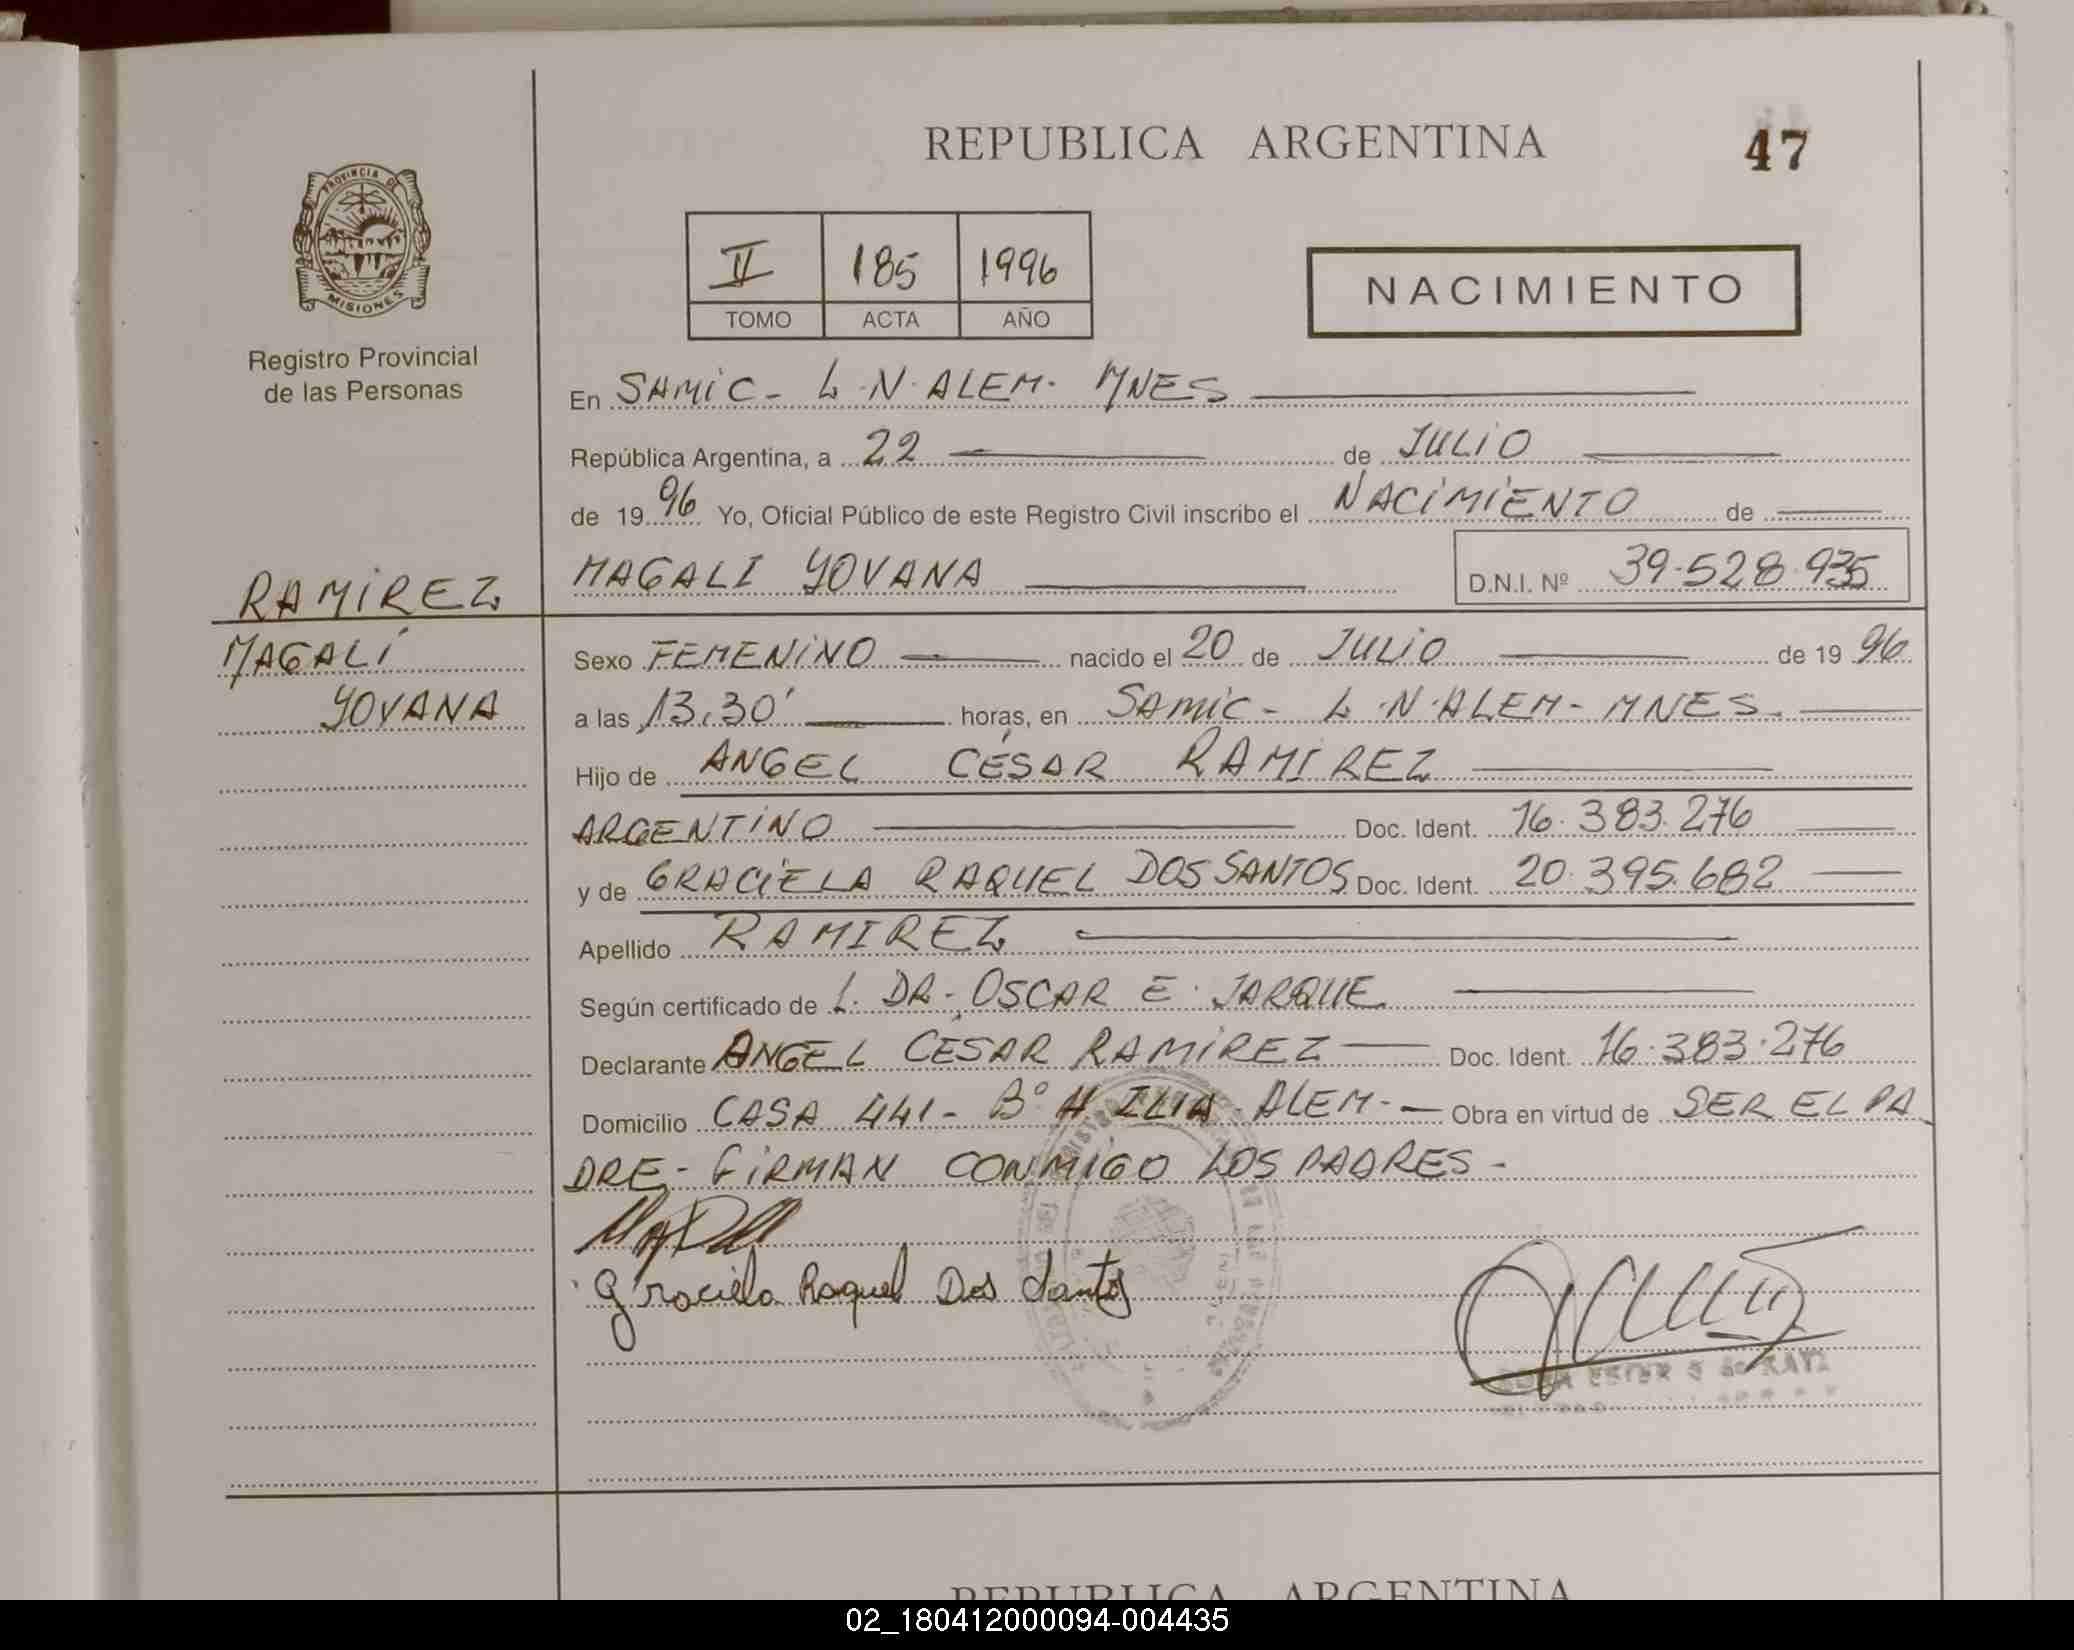 REPUBLICA ARGENTINA
47
PROVINCIA DE
MISIONES
Registro Provincial
de las Personas
II 185 1996
TOMO ACTA AÑO
NACIMIENTO
En SAMIC - L.N. ALEM - MNES
República Argentina, a 22 de JULIO
de 1996 Yo, Oficial Público de este Registro Civil inscribo el NACIMIENTO de
MAGALI YOVANA D.N.I. Nº 39.528.935
RAMIREZ
MAGALI
YOVANA
Sexo FEMENINO nacido el 20 de JULIO de 1996
a las 13.30' horas, en SAMIC - L.N. ALEM - MNES
Hijo de ANGEL CÉSAR RAMIREZ
ARGENTINO Doc. Ident. 16.383.276
y de GRACIELA RAQUEL DOS SANTOS Doc. Ident. 20.395.682
Apellido RAMIREZ
Según certificado de L. DR. OSCAR E. JARQUE
Declarante ANGEL CÉSAR RAMIREZ Doc. Ident. 16.383.276
Domicilio CASA 441 - Bº H. ILIA - ALEM - Obra en virtud de SER EL PA
DRE - FIRMAN CONMIGO LOS PADRES -
Graciela Raquel Dos Santos
REPUBLICA ARGENTINA
02_180412000094-004435